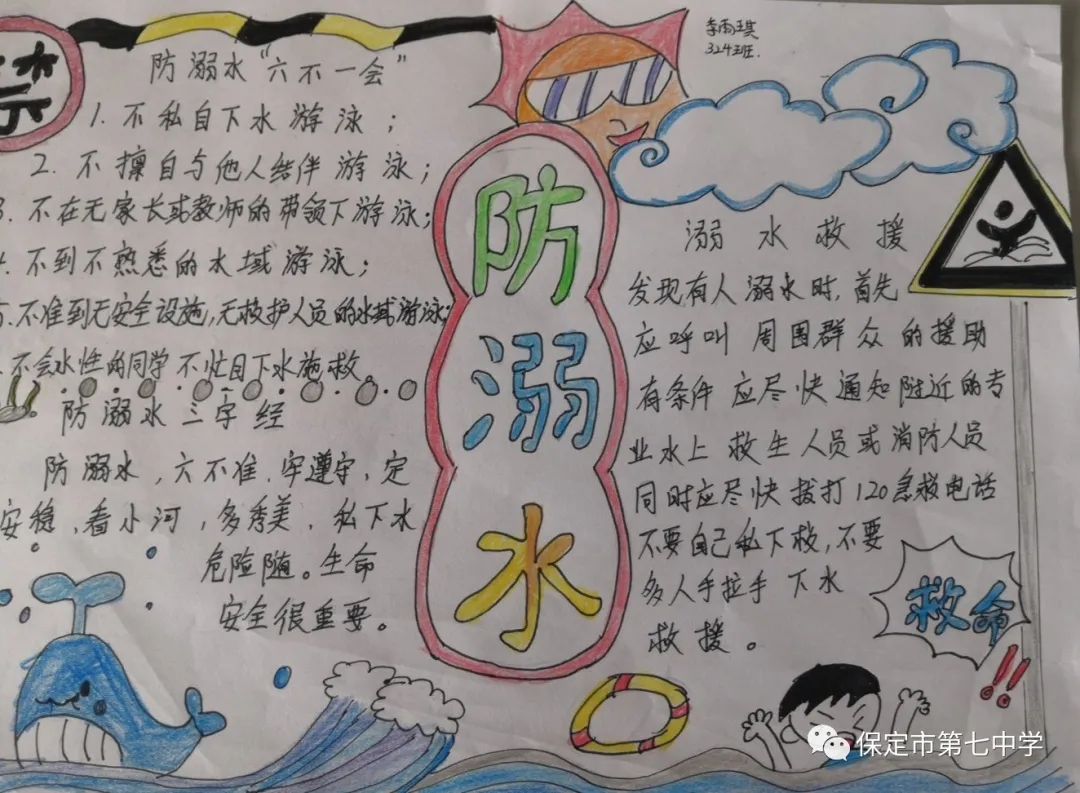 禁
防溺水“六不一会”
1.不私自下水游泳；
2.不擅自与他人结伴游泳；
3.不在无家长或教师的带领下游泳；
4.不到不熟悉的水域游泳；
5.不准到无安全设施,无救护人员的水域游泳；
不会水性的同学不忙目下水施救
防溺水三字经
防溺水,六不准,牢遵守,定
安稳,看小河,多秀美,私下水
危险随。生命
安全很重要。
防
溺
水
李雨琪
324班.
溺水救援
发现有人溺水时,首先
应呼叫周围群众的援助
有条件应尽快通知附近的专
业水上救生人员或消防人员
同时应尽快拔打120急救电话
不要自己私下救,不要
多人手拉手下水
救援。
救命
!!
保定市第七中学